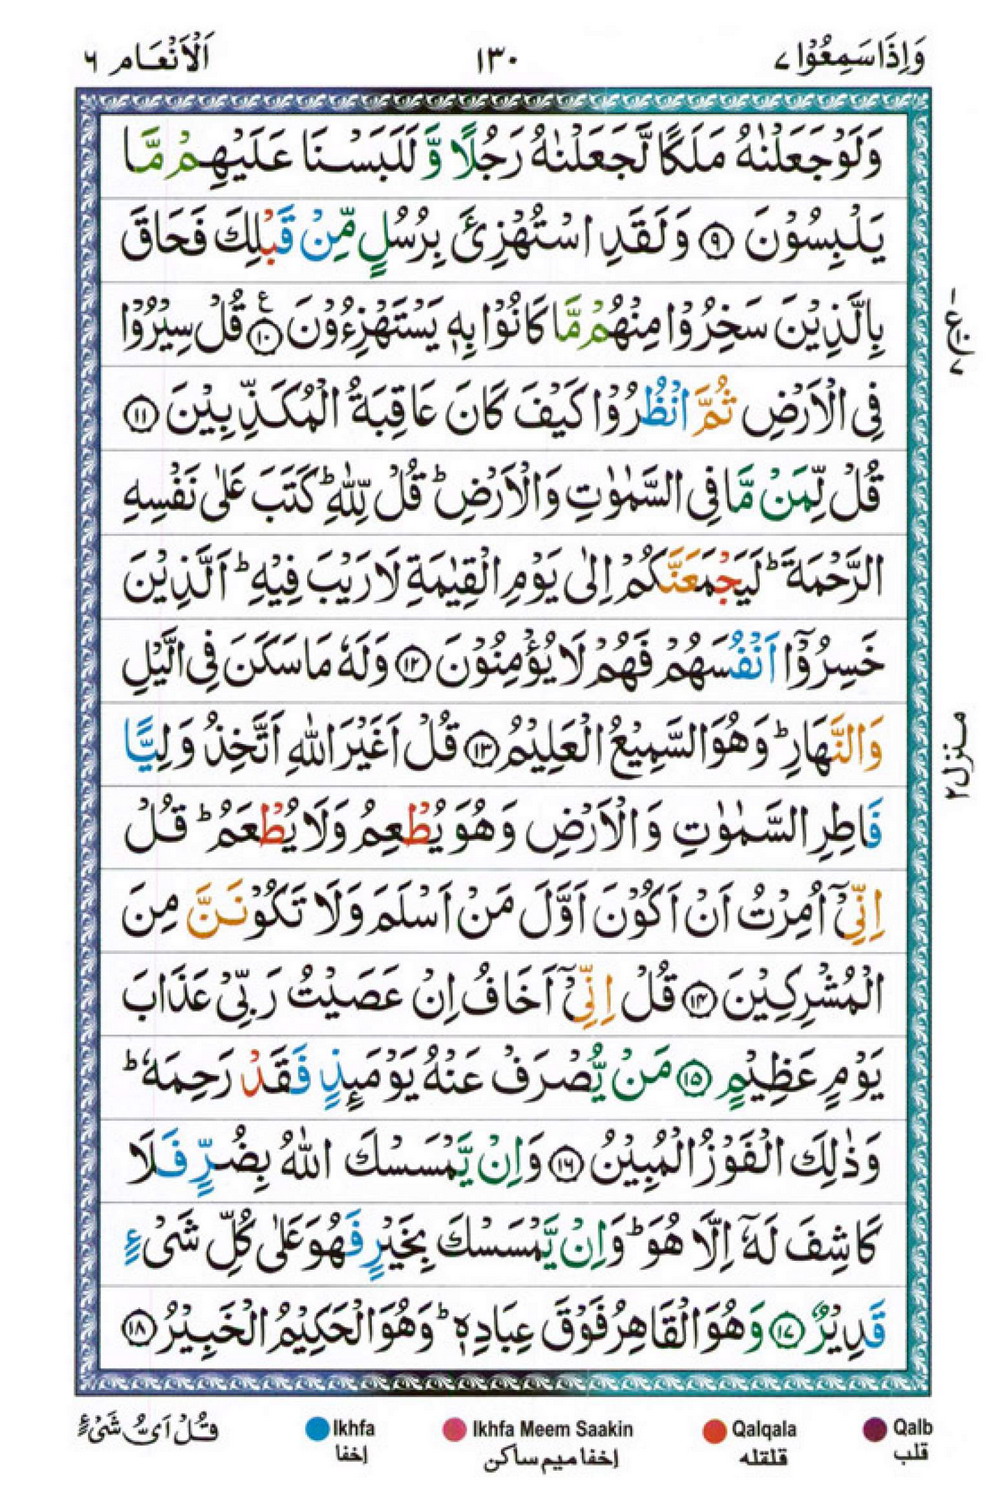 وَاِذَا سَمِعُوْا ٧ ١٣٠ اَلْاَنْعَام ٦
وَلَوْ جَعَلْنٰهُ مَلَكًا لَّجَعَلْنٰهُ رَجُلًا وَّ لَلَبَسْنَا عَلَيْهِمْ مَّا
يَلْبِسُوْنَ ٩ وَلَقَدِ اسْتُهْزِئَ بِرُسُلٍ مِّنْ قَبْلِكَ فَحَاقَ
بِالَّذِيْنَ سَخِرُوْا مِنْهُمْ مَّا كَانُوْا بِهٖ يَسْتَهْزِءُوْنَ ١٠ ع قُلْ سِيْرُوْا
فِى الْاَرْضِ ثُمَّ انْظُرُوْا كَيْفَ كَانَ عَاقِبَةُ الْمُكَذِّبِيْنَ ١١
قُلْ لِّمَنْ مَّا فِى السَّمٰوٰتِ وَالْاَرْضِ ؕ قُلْ لِّلّٰهِ ؕ كَتَبَ عَلٰى نَفْسِهِ
الرَّحْمَةَ ؕ لَيَجْمَعَنَّكُمْ اِلٰى يَوْمِ الْقِيٰمَةِ لَا رَيْبَ فِيْهِ ؕ اَلَّذِيْنَ
خَسِرُوْۤا اَنْفُسَهُمْ فَهُمْ لَا يُؤْمِنُوْنَ ١٢ وَلَهٗ مَا سَكَنَ فِى الَّيْلِ
وَالنَّهَارِ ؕ وَهُوَ السَّمِيْعُ الْعَلِيْمُ ١٣ قُلْ اَغَيْرَ اللّٰهِ اَتَّخِذُ وَلِيًّا
فَاطِرِ السَّمٰوٰتِ وَالْاَرْضِ وَهُوَ يُطْعِمُ وَلَا يُطْعَمُ ؕ قُلْ
اِنِّىْۤ اُمِرْتُ اَنْ اَكُوْنَ اَوَّلَ مَنْ اَسْلَمَ وَلَا تَكُوْنَنَّ مِنَ
الْمُشْرِكِيْنَ ١٤ قُلْ اِنِّىْۤ اَخَافُ اِنْ عَصَيْتُ رَبِّىْ عَذَابَ
يَوْمٍ عَظِيْمٍ ١٥ مَنْ يُّصْرَفْ عَنْهُ يَوْمَئِذٍ فَقَدْ رَحِمَهٗ ؕ
وَذٰلِكَ الْفَوْزُ الْمُبِيْنُ ١٦ وَاِنْ يَّمْسَسْكَ اللّٰهُ بِضُرٍّ فَلَا
كَاشِفَ لَهٗۤ اِلَّا هُوَ ؕ وَاِنْ يَّمْسَسْكَ بِخَيْرٍ فَهُوَ عَلٰى كُلِّ شَىْءٍ
قَدِيْرٌ ١٧ وَهُوَ الْقَاهِرُ فَوْقَ عِبَادِهٖ ؕ وَهُوَ الْحَكِيْمُ الْخَبِيْرُ ١٨
منزل ٢
قُلْ اَىُّ شَىْءٍ Ikhfa Ikhfa Meem Saakin Qalqala Qalb
إخفا إخفا میم ساکن قلقله قلب